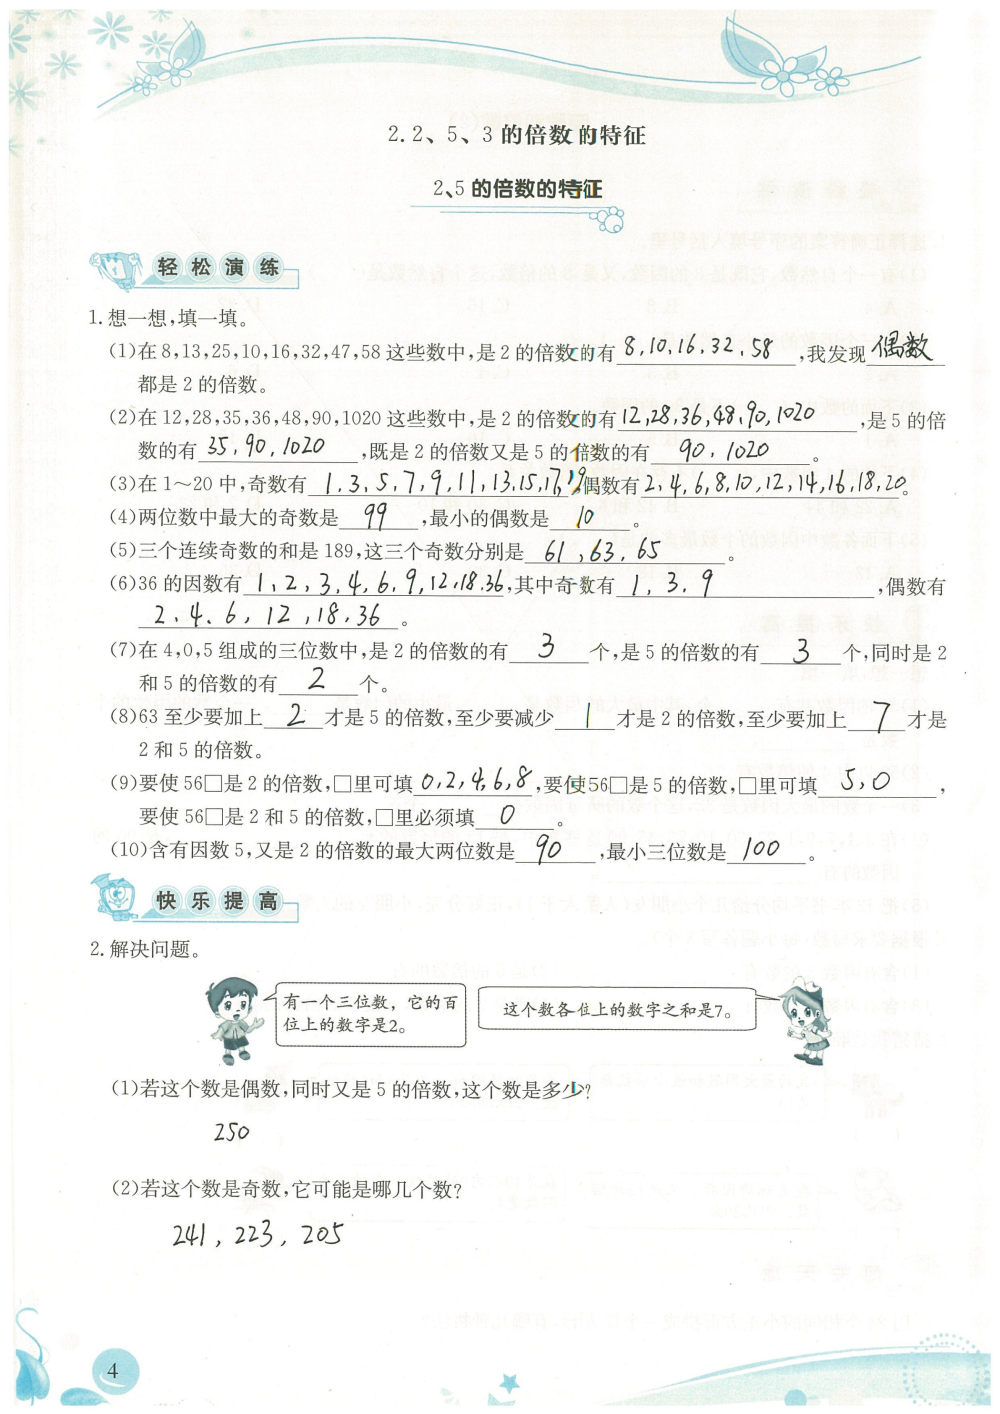 2.2、5、3的倍数的特征
2、5的倍数的特征
轻松演练
1.想一想,填一填。
(1)在8,13,25,10,16,32,47,58这些数中,是2的倍数的有 8,10,16,32,58 ,我发现 偶数
都是2的倍数。
(2)在12,28,35,36,48,90,1020这些数中,是2的倍数的有 12,28,36,48,90,1020 ,是5的倍
数的有 35,90,1020 ,既是2的倍数又是5的倍数的有 90,1020 。
(3)在1～20中,奇数有 1,3,5,7,9,11,13,15,17,19 ,偶数有 2,4,6,8,10,12,14,16,18,20 。
(4)两位数中最大的奇数是 99 ,最小的偶数是 10 。
(5)三个连续奇数的和是189,这三个奇数分别是 61,63,65 。
(6)36的因数有 1,2,3,4,6,9,12,18,36 ,其中奇数有 1,3,9 ,偶数有
2,4,6,12,18,36 。
(7)在4,0,5组成的三位数中,是2的倍数的有 3 个,是5的倍数的有 3 个,同时是2
和5的倍数的有 2 个。
(8)63至少要加上 2 才是5的倍数,至少要减少 1 才是2的倍数,至少要加上 7 才是
2和5的倍数。
(9)要使56□是2的倍数,□里可填 0,2,4,6,8 ,要使56□是5的倍数,□里可填 5,0 ,
要使56□是2和5的倍数,□里必须填 0 。
(10)含有因数5,又是2的倍数的最大两位数是 90 ,最小三位数是 100 。
快乐提高
2.解决问题。
有一个三位数，它的百
位上的数字是2。
这个数各位上的数字之和是7。
(1)若这个数是偶数,同时又是5的倍数,这个数是多少?
250
(2)若这个数是奇数,它可能是哪几个数?
241, 223, 205
4